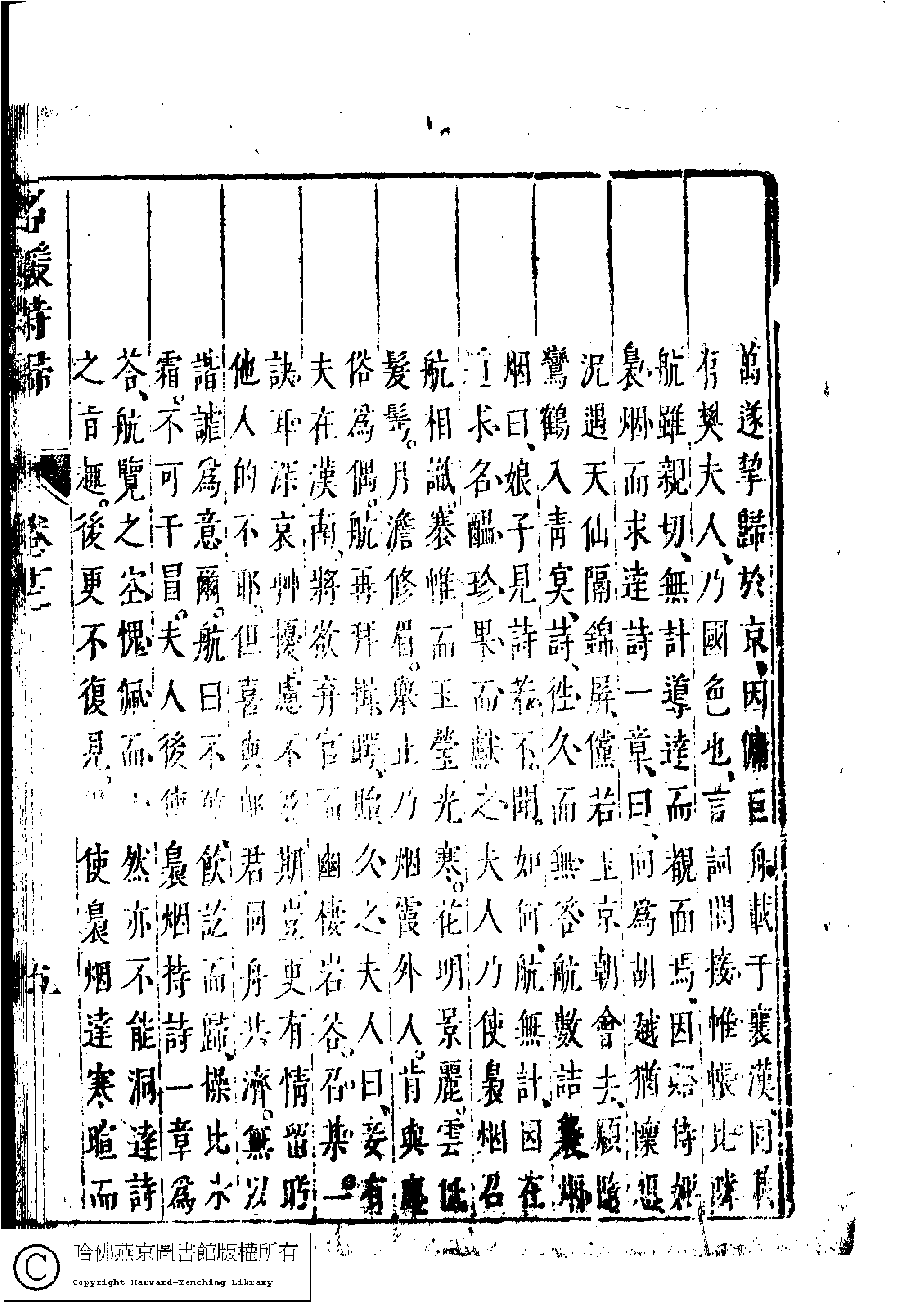 萬遂挈歸於京、因傭巨舟載于襄漢、同載
有樊夫人、乃國色也、言詞間接、帷帳比鄰
航雖親切、無計導達而覩面焉、因賂侍婢
裊烟而求達詩一章、曰、向為胡越猶懷想
況遇天仙隔錦屏、儻若玉京朝會去、願隨
鸞鶴入青冥、詩往久而無答、航數詰裊烟
烟曰、娘子見詩若不聞、如何、航無計、因在
求名醞珍果而獻之、夫人乃使裊烟召
航相識、褰帷而玉瑩光寒。花明景麗。雲低
鬟鬢。月澹修眉。舉止乃烟霞外人。肯與塵
俗為偶。航再拜揖、久之、夫人曰、妾有
夫在漢南、將欲弃官而幽棲岩谷、召某一
訣耳、深哀艸擾、慮不及期、豈更有情留盼
他人的不耶。但喜與郎君同舟共濟。無以
諧謔為意爾。航曰、不敢飲訖而歸、操比氷
霜。不可干冒。夫人後使裊烟持詩一章為
荅、航覽之空愧佩而然亦不能洞達詩
之旨趣。後更不復見。使裊烟達寒暄而
名媛詩歸
五
哈佛燕京圖書館版權所有
Copyright Harvard-Yenching Library